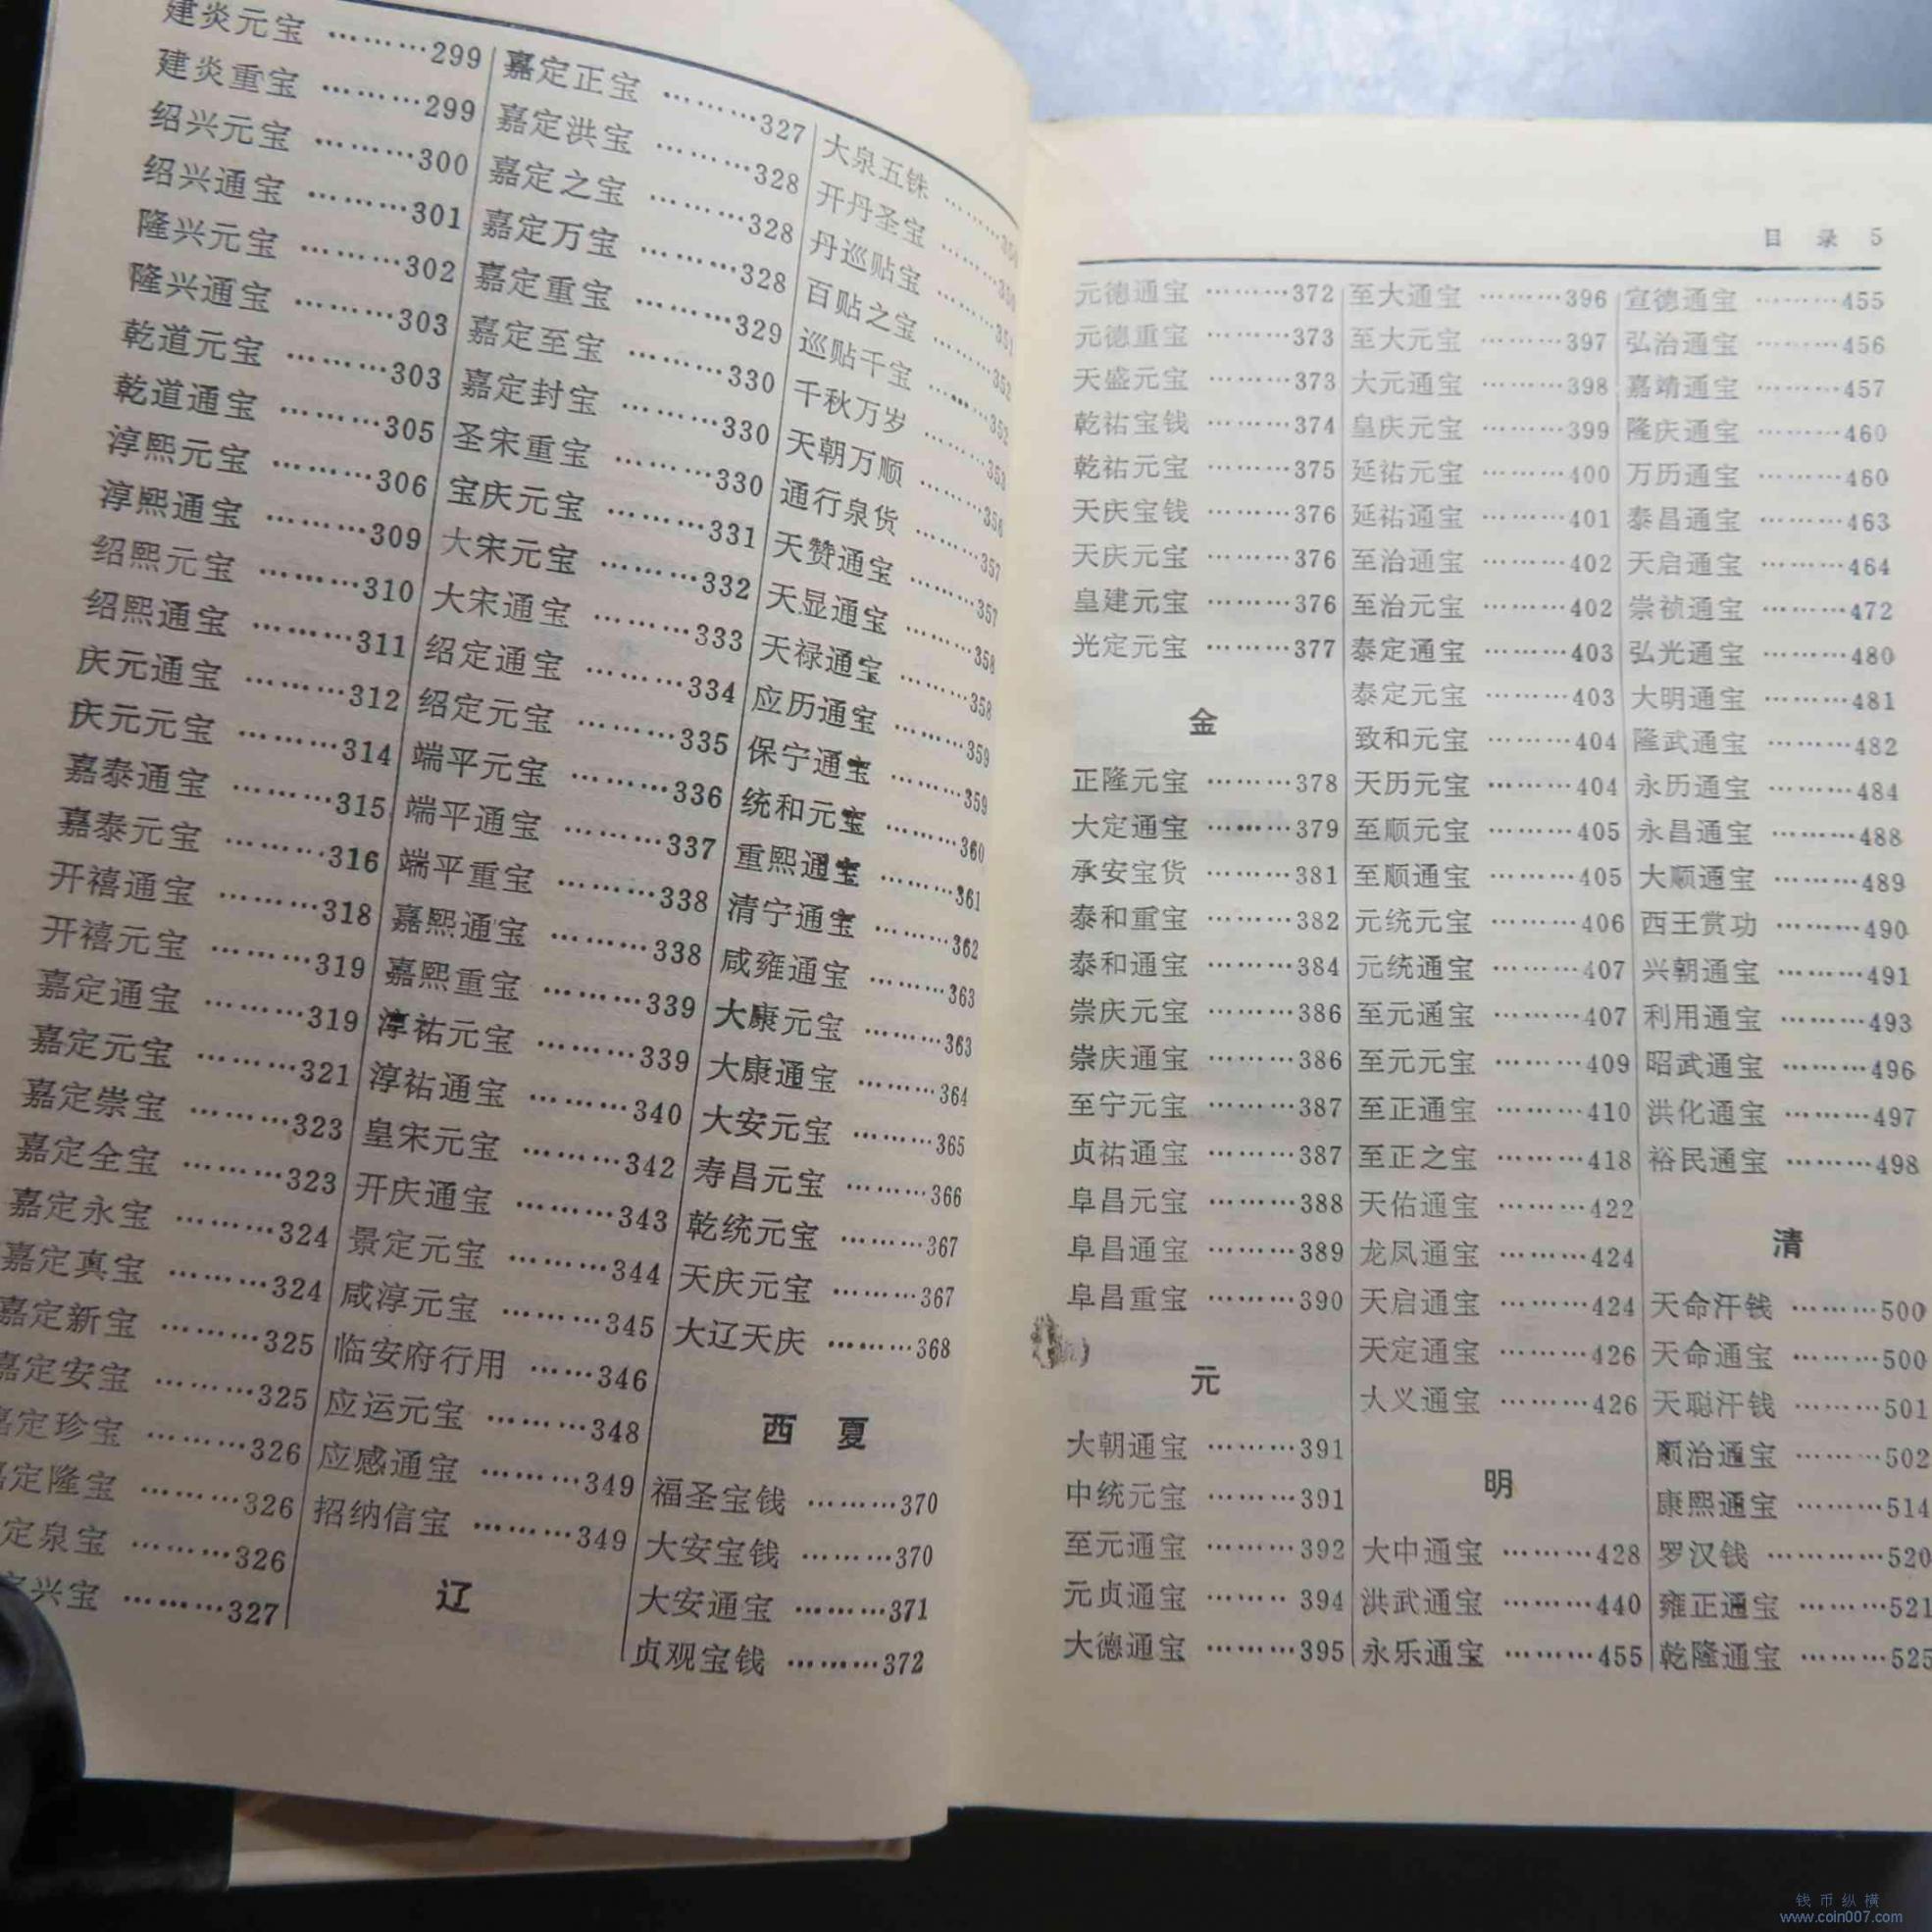 建炎元宝 ………299
建炎重宝 ………299
绍兴元宝 ………300
绍兴通宝 ………301
隆兴元宝 ………302
隆兴通宝 ………303
乾道元宝 ………303
乾道通宝 ………305
淳熙元宝 ………306
淳熙通宝 ………309
绍熙元宝 ………310
绍熙通宝 ………311
庆元通宝 ………312
庆元元宝 ………314
嘉泰通宝 ………315
嘉泰元宝 ………316
开禧通宝 ………318
开禧元宝 ………319
嘉定通宝 ………319
嘉定元宝 ………321
嘉定崇宝 ………323
嘉定全宝 ………323
嘉定永宝 ………324
嘉定真宝 ………324
嘉定新宝 ………325
嘉定安宝 ………325
嘉定珍宝 ………326
嘉定隆宝 ………326
定泉宝 ………326
定兴宝 ………327
嘉定正宝 ………327
嘉定洪宝 ………328
嘉定之宝 ………328
嘉定万宝 ………328
嘉定重宝 ………329
嘉定至宝 ………330
嘉定封宝 ………330
圣宋重宝 ………330
宝庆元宝 ………331
大宋元宝 ………332
大宋通宝 ………333
绍定通宝 ………334
绍定元宝 ………335
端平元宝 ………336
端平通宝 ………337
端平重宝 ………338
嘉熙通宝 ………338
嘉熙重宝 ………339
淳祐元宝 ………339
淳祐通宝 ………340
皇宋元宝 ………342
开庆通宝 ………343
景定元宝 ………344
咸淳元宝 ………345
临安府行用 ……346
应运元宝 ………348
应感通宝 ………349
招纳信宝 ………349
辽
大泉五铢 ………
开丹圣宝 ………
丹巡贴宝 ………351
百贴之宝 ………352
巡贴千宝 ………352
千秋万岁 ………353
天朝万顺 ………356
通行泉货 ………357
天赞通宝 ………357
天显通宝 ………358
天禄通宝 ………358
应历通宝 ………359
保宁通宝 ………359
统和元宝 ………360
重熙通宝 ………361
清宁通宝 ………362
咸雍通宝 ………363
大康元宝 ………363
大康通宝 ………364
大安元宝 ………365
寿昌元宝 ………366
乾统元宝 ………367
天庆元宝 ………367
大辽天庆 ………368
西 夏
福圣宝钱 ………370
大安宝钱 ………370
大安通宝 ………371
贞观宝钱 ………372
目 录 5
元德通宝 ………372
元德重宝 ………373
天盛元宝 ………373
乾祐宝钱 ………374
乾祐元宝 ………375
天庆宝钱 ………376
天庆元宝 ………376
皇建元宝 ………376
光定元宝 ………377
金
正隆元宝 ………378
大定通宝 ………379
承安宝货 ………381
泰和重宝 ………382
泰和通宝 ………384
崇庆元宝 ………386
崇庆通宝 ………386
至宁元宝 ………387
贞祐通宝 ………387
阜昌元宝 ………388
阜昌通宝 ………389
阜昌重宝 ………390
元
大朝通宝 ………391
中统元宝 ………391
至元通宝 ………392
元贞通宝 ……… 394
大德通宝 ………395
至大通宝 ………396
至大元宝 ………397
大元通宝 ………398
皇庆元宝 ………399
延祐元宝 ………400
延祐通宝 ………401
至治通宝 ………402
至治元宝 ………402
泰定通宝 ………403
泰定元宝 ………403
致和元宝 ………404
天历元宝 ………404
至顺元宝 ………405
至顺通宝 ………405
元统元宝 ………406
元统通宝 ………407
至元通宝 ………407
至元元宝 ………409
至正通宝 ………410
至正之宝 ………418
天佑通宝 ………422
龙凤通宝 ………424
天启通宝 ………424
天定通宝 ………426
大义通宝 ………426
明
大中通宝 ………428
洪武通宝 ………440
永乐通宝 ………455
宣德通宝 ………455
弘治通宝 ………456
嘉靖通宝 ………457
隆庆通宝 ………460
万历通宝 ………460
泰昌通宝 ………463
天启通宝 ………464
崇祯通宝 ………472
弘光通宝 ………480
大明通宝 ………481
隆武通宝 ………482
永历通宝 ………484
永昌通宝 ………488
大顺通宝 ………489
西王赏功 ………490
兴朝通宝 ………491
利用通宝 ………493
昭武通宝 ………496
洪化通宝 ………497
裕民通宝 ………498
清
天命汗钱 ………500
天命通宝 ………500
天聪汗钱 ………501
顺治通宝 ………502
康熙通宝 ………514
罗汉钱 …………520
雍正通宝 ………521
乾隆通宝 ………525
钱币纵横
www.coin007.com